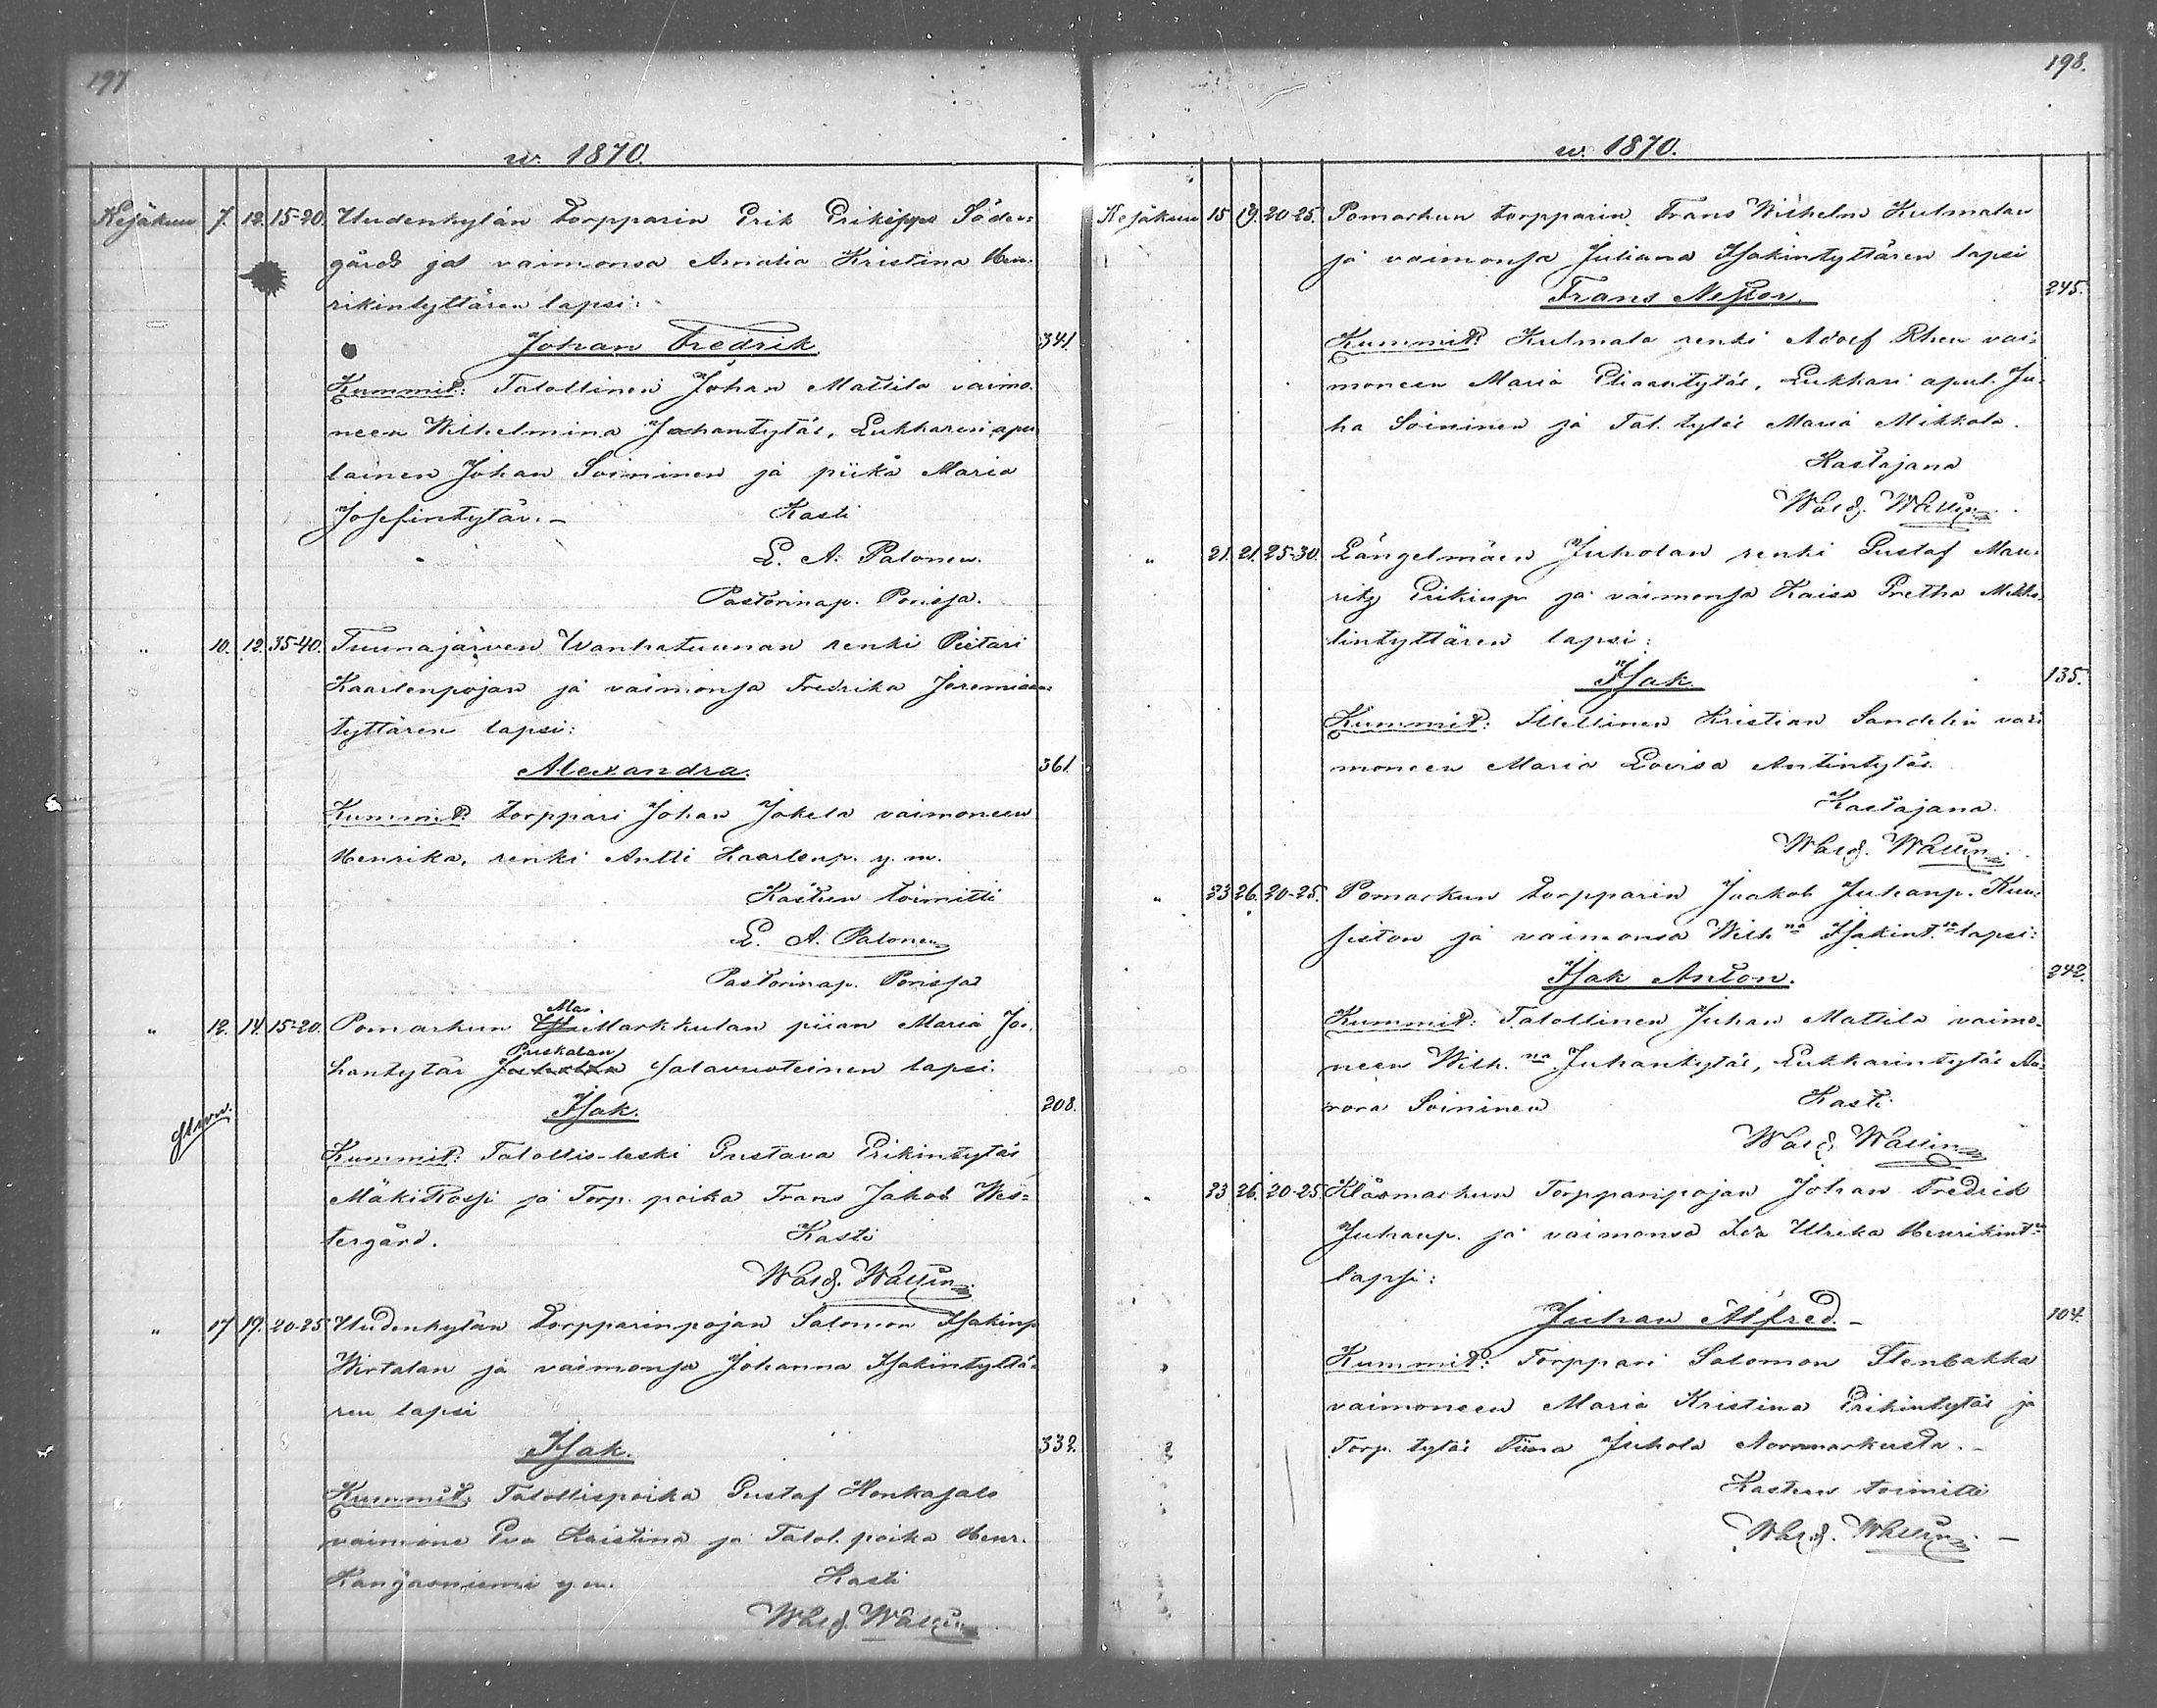 197
w. 1870.
Kesäkuu 7. 12. 15-20. Uudenkylän torpparin Erik Söder-
gård ja vaimonsa Amalia Kristina Hen-
rikintyttären lapsi:
Johan Fredrik. 341.
Kummit: Talollinen Johan Mattila vaimo-
neen Wilhelmina Johantytär, Lukkarin apu
lainen Johan Soininen ja piika Maria
Josefintytär. – Kasti
E. A. Palonen.
Pastorinap. Porissa.
" 10. 12. 35-40. Tuunajärven Wanhatuunan renki Pietari
Kaarlenpojan ja vaimonsa Fredrika Jeremiaan
tyttären lapsi:
Alexandra. 361.
Kummit: torppari Johan Jokela vaimoneen
Henrika, renki Antti Kaarlenp. y. m.
Kasteen toimitti
E. A. Palonen
Pastorinap. Porissa
" 12. 14. 15-20. Pomarkun Mar. Markkulan piian Maria Jo-
hantytär Puskalan salavuoteinen lapsi.
Isak. 208.
Kummit: Talollis-leski Gustava Erikintytär
MäkiRossi ja Torp. poika Frans Jakob Wes-
tergård. Kasti
Wald. Wallin
" 17 19. 20-25 Uudenkylän torpparinpojan Salomon Isakinp
Wirtalan ja vaimonsa Johanna Isakintyttä-
ren lapsi
Isak. 332.
Kummit: Talollispoika Gustaf Honkasalo
vaimone Eva Kristina ja Talol. poika Henr.
Kangasniemi y. m. Kasti
Wald. Wallin
198.
w. 1870.
Kesäkuu 15 19. 20-25. Pomarkun torpparin Frans Wilhelm Kulmalan
ja vaimonsa Juliana Isakintyttären lapsi
Frans Nestor. 245.
Kummit: Kulmala renki Adolf Rhen vai-
moneen Maria Eliaantytär, Lukkari apul. Ju-
ha Soininen ja Tal. tytär Maria Mikkola.
Kastajana
Wald. Wallin
" 21. 21. 25-30. Längelmäen Juholan renki Gustaf Mau-
ritz Erikinp ja vaimonsa Kaisa Gretha Mikke-
lintyttären lapsi:
Isak. 135.
Kummit: Itellinen Kristian Sandelin vai
moneen Maria Lovisa Antintytär
Kastajana
Wald. Wallin
" 23 26. 20-25. Pomarkun torpparin Jaakob Juhanp. Kuu-
siston ja vaimonsa Wilh.na Isakint.en lapsi:
Isak Anton. 242.
Kummit: Talollinen Juhan Mattila vaimo-
neen Wilh.na Juhantytär, Lukkarintytär Au-
rora Soininen Kasti
Wald. Wallin
" 23 26. 20-25. Kläsmarkun Torpparipojan Johan Fredrik
Juhanp. ja vaimonsa Ida Ulrika Henrikint.n
lapsi:
Juhan Alfred. – 104.
Kummit: Torppari Salomon Stenbakka
vaimoneen Maria Kristina Erikintytär ja
Torp. tytär Tiina Juhola Norrmarkusta. –
Kasteen toimitti
Wald. Wallin. –